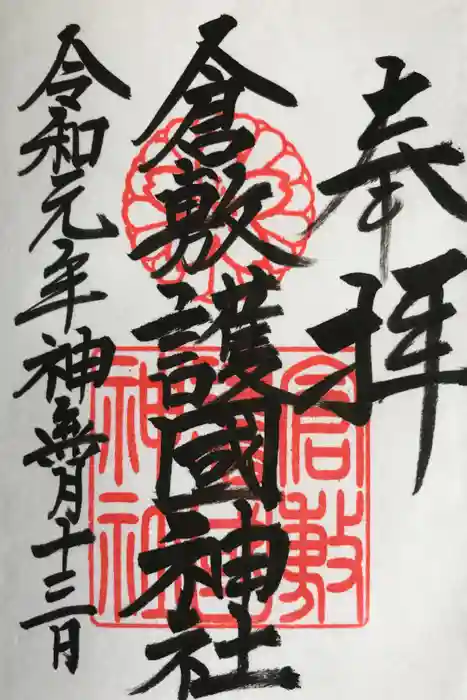 奉拝
倉敷護國神社
令和元年神無月十三日
倉敷
護國
神社